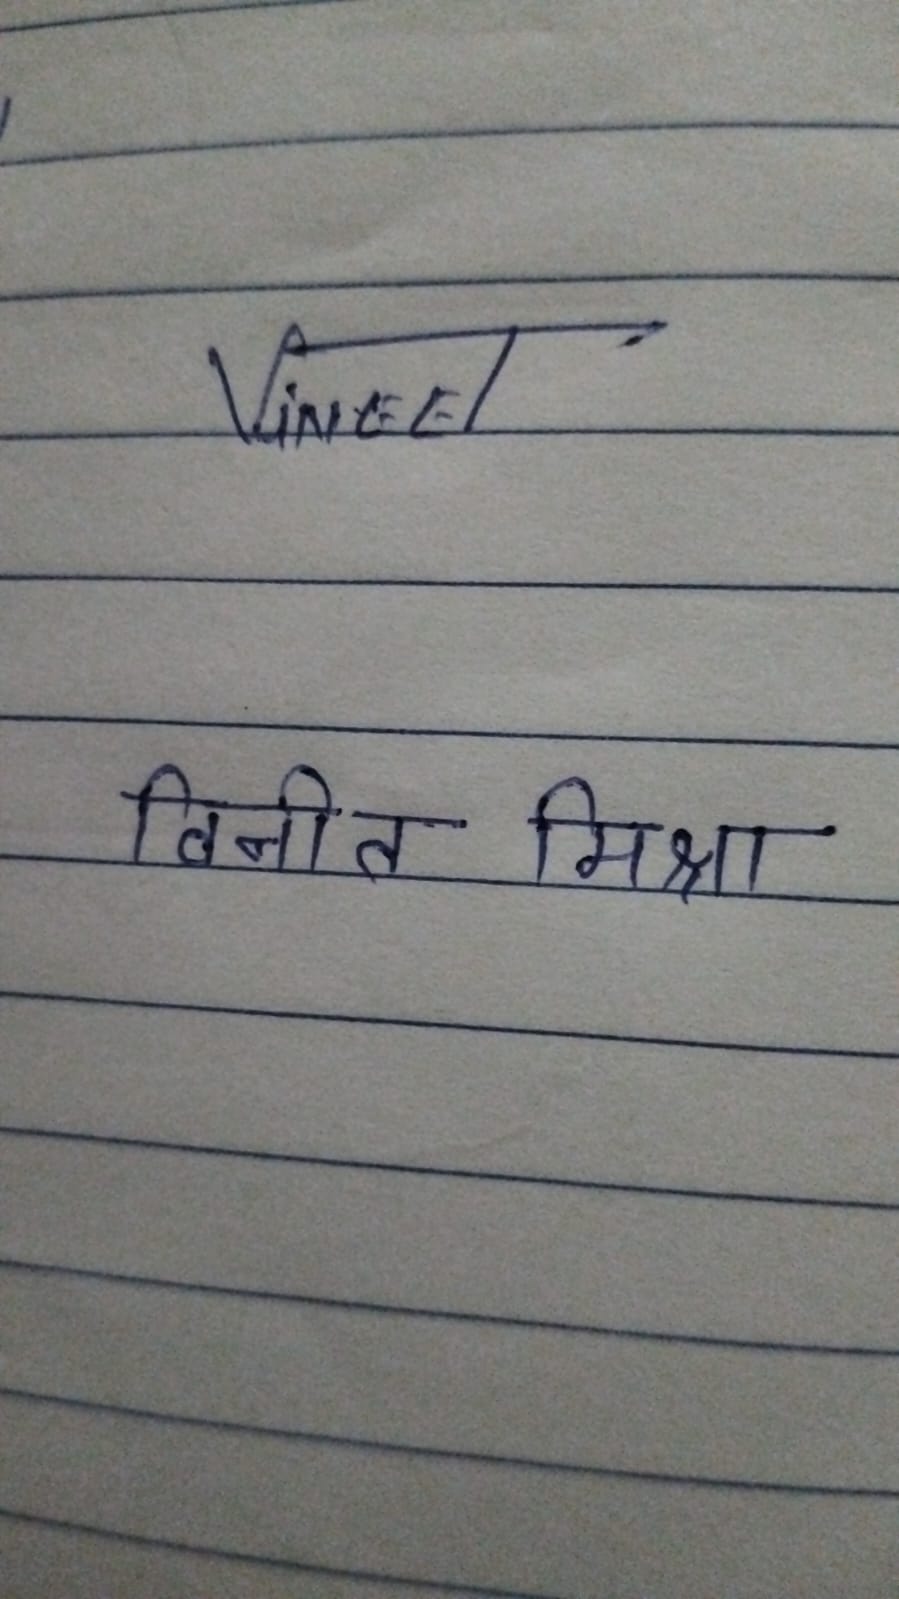 VINEET
विनीत मिश्रा